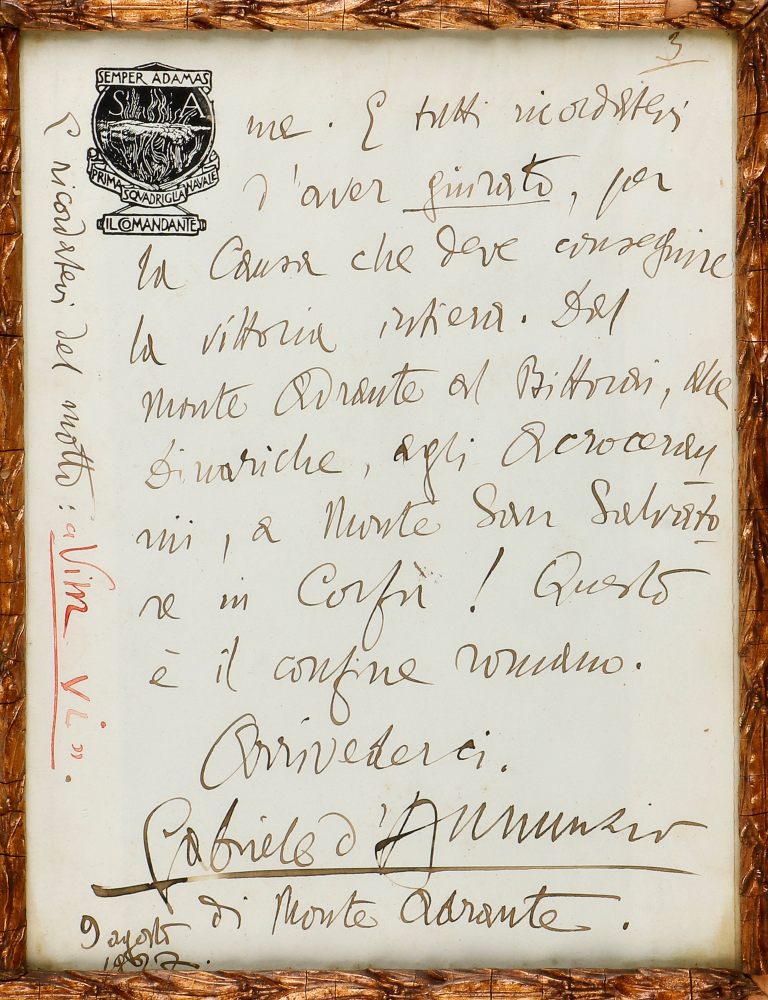 3
SEMPER ADAMAS
S A
PRIMA SQVADRIGLIA NAVALE
IL COMANDANTE
me. E tutti ricordatevi
d'aver giurato, per
la Causa che deve conseguire
la vittoria intiera. Dal
Monte Adrante al Bittorai, alle
Dinariche, agli Acrocerau
ni, a Monte San Salvato
re in Corfù! Questo
è il confine romano.
Arrivederci.
Gabriele d'Annunzio
di Monte Adrante.
9 agosto
1927.
E ricordatevi del motto: «Vim Vi».